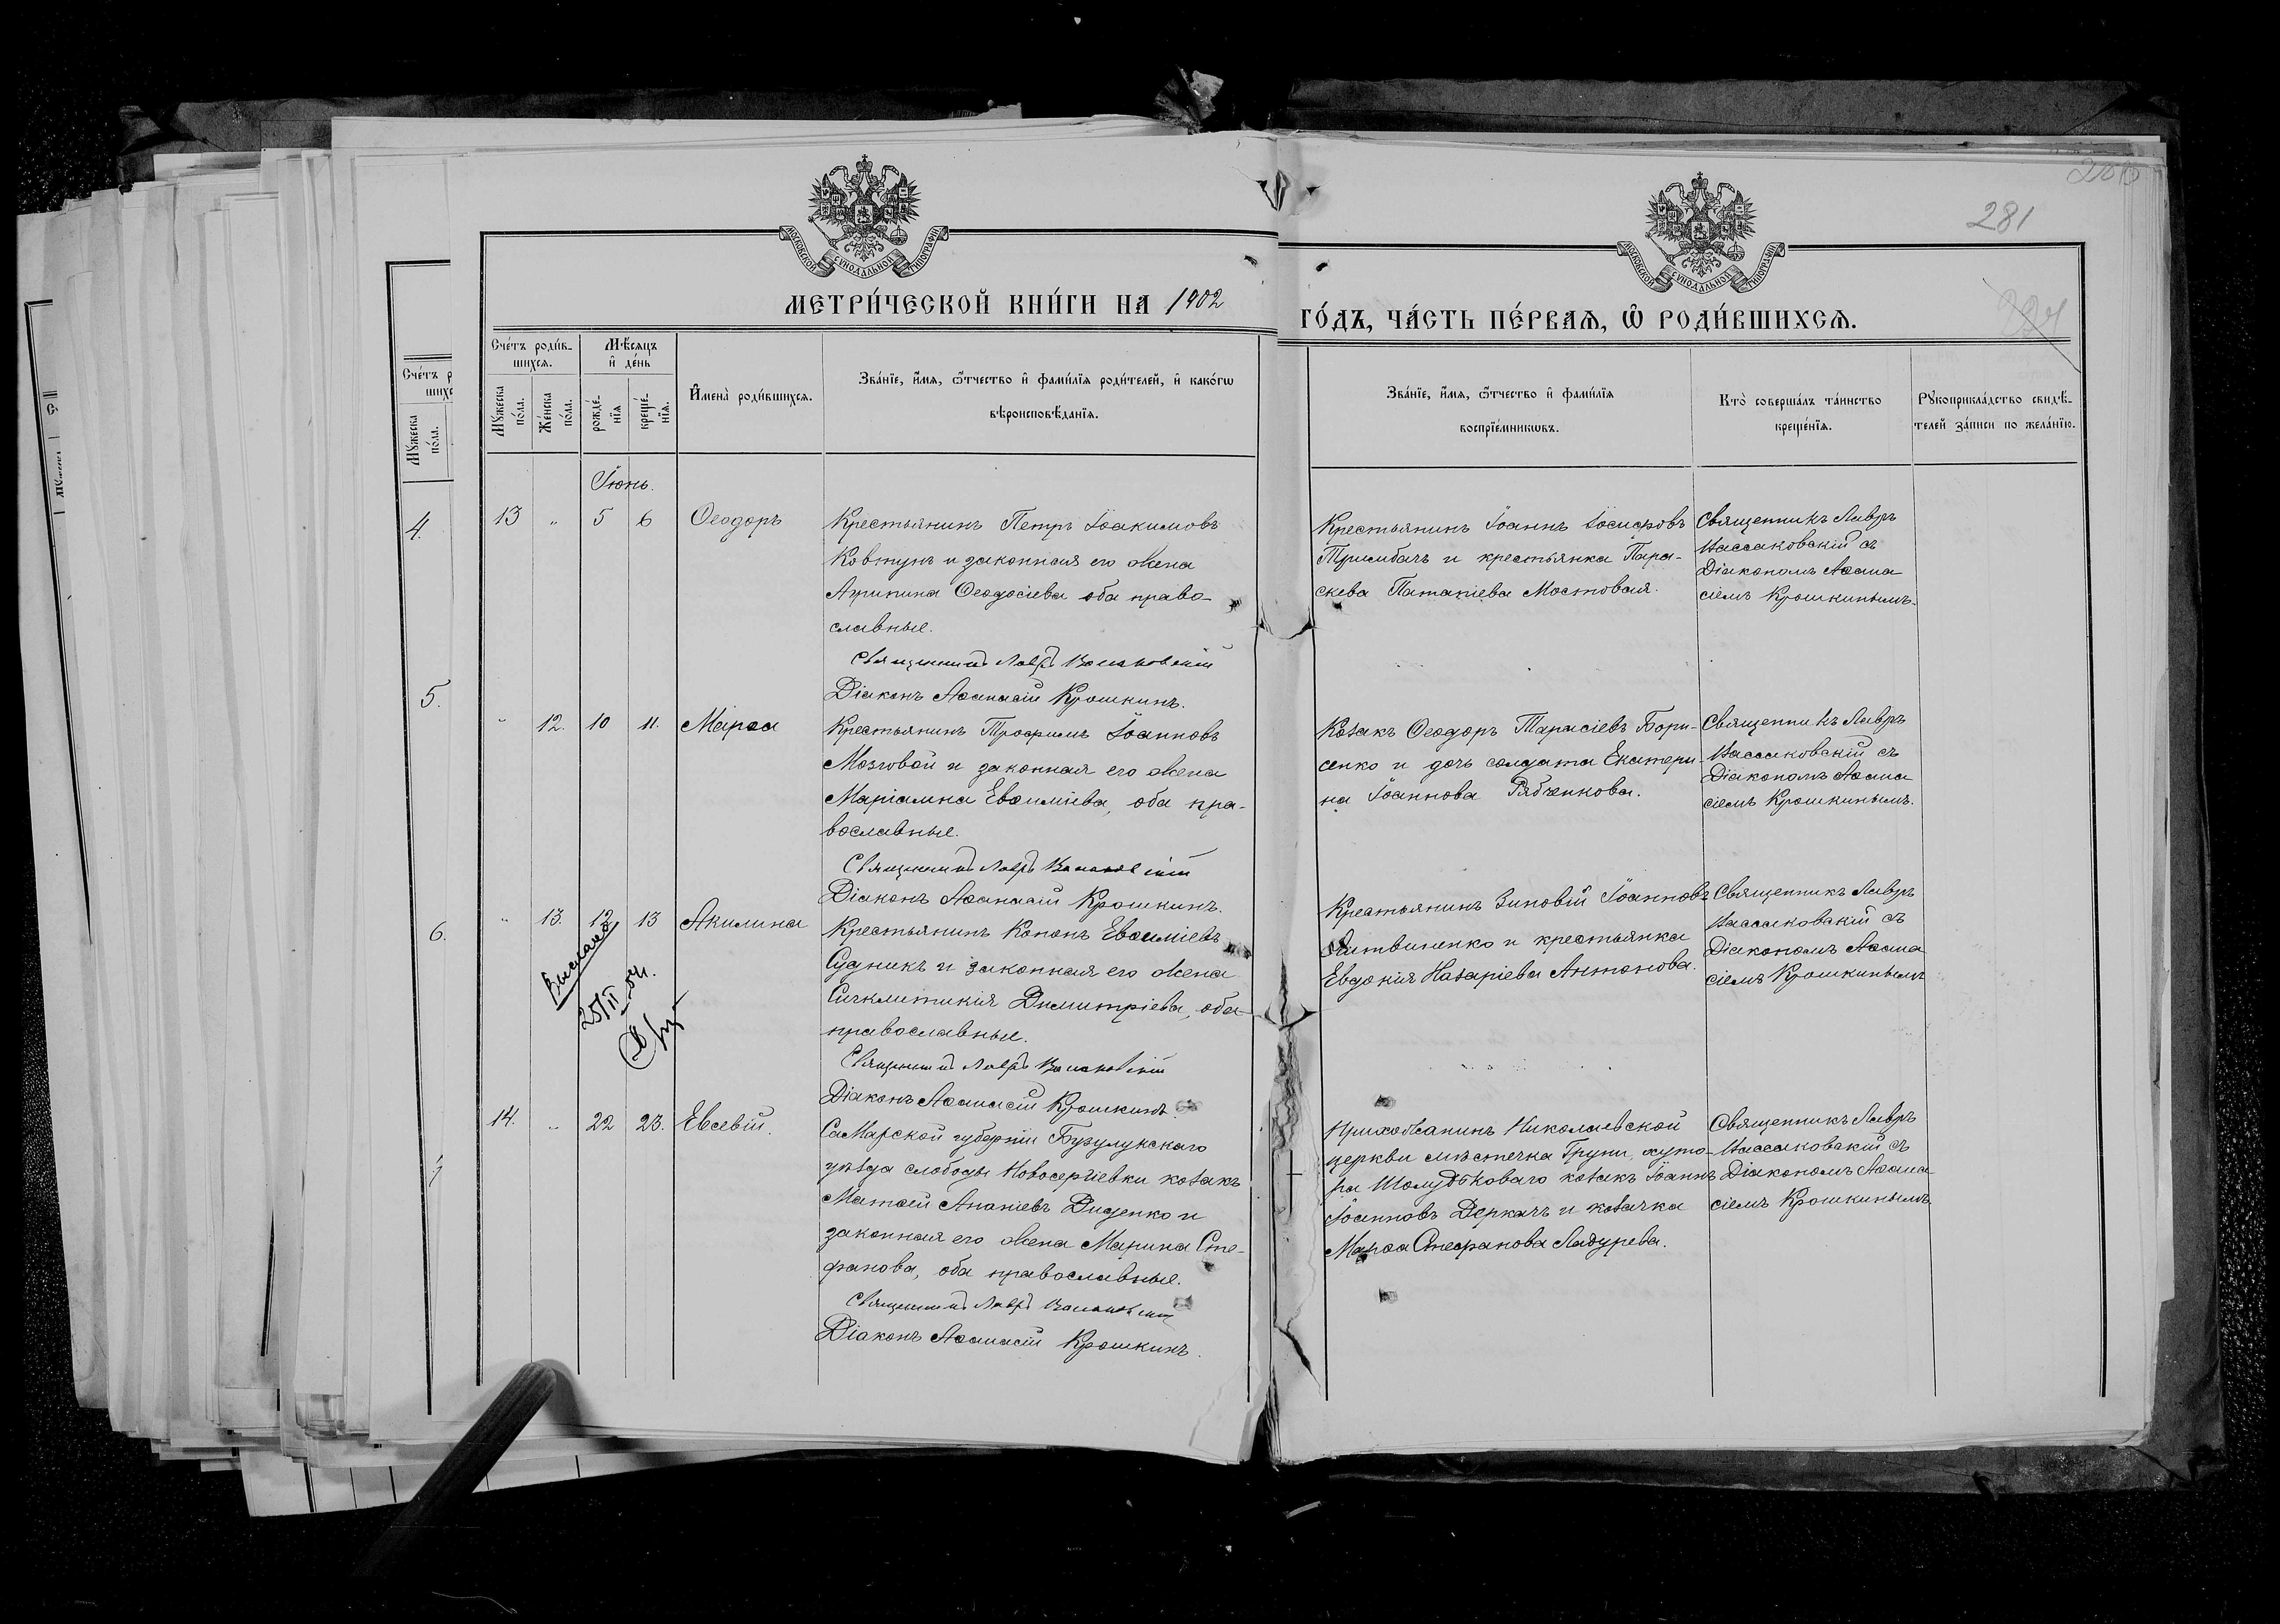 281
МОСКОВСКОЙ СѴНОДАЛЬНОЙ ТИПОГРАФІИ
МОСКОВСКОЙ СѴНОДАЛЬНОЙ ТИПОГРАФІИ
МЕТРИ́ЧЕСКОЙ КНИ́ГИ НА 1902
ГО́ДЪ, ЧА́СТЬ ПЕ́РВАѦ, Ѡ РОДИ́ВШИХСѦ.
Сче́тъ роди́в-
шихсѧ.
Мѣ́сѧцъ
и҆ де́нь
Мꙋ́жеска
по́ла.
Же́нска
по́ла.
рожде́-
нїѧ
креще́-
нїѧ.
И҆мена̀ роди́вшихсѧ.
Зва́нїе, и҆́мѧ, ѻ҆́тчество и҆ фами́лїѧ роди́телей, и҆ како́гѡ
вѣроисповѣ́данїѧ.
Зва́нїе, и҆́мѧ, ѻ҆́тчество и҆ фами́лїѧ
воспрїе́мникѡвъ.
Кто̀ соверша́лъ та́инство
креще́нїѧ.
Рꙋкоприкла́дство свидѣ́-
телей за́писи по жела́нїю.
Іюнь.
13 " 5 6 Ѳеодоръ
Крестьянинъ Петръ Іоакимовъ
Ковтунъ и законная его жена
Агрипина Ѳеодосіева оба право-
славные.
Священникъ Лавръ
Діаконъ Аѳанасій Крошкинъ.
Крестьянинъ Іоаннъ Іосифовъ
Тримбачъ и крестьянка Пара-
скева Патапіева Мостовая.
Священникъ Лавръ
съ
Діакономъ Аѳана
сіемъ Крошкинымъ.
" 12. 10 11. Марѳа
Крестьянинъ Трофимъ Іоанновъ
Мозговой и законная его жена
Маріамна Евѳиміева, оба пра-
вославные.
Священникъ Лавръ
Діаконъ Аѳанасій Крошкинъ.
Козакъ Ѳеодоръ Тарасіевъ Бори-
сенко и дочь солдата Екатери-
на Іоаннова Рябченкова.
Священникъ Лавръ
съ
Діакономъ Аѳана
сіемъ Крошкинымъ.
" 13. 12 13 Акилина
Крестьянинъ Кононъ Евѳиміевъ
Судникъ и законная его жена
Сигклитикія Димитріева, оба
православные.
Священникъ Лавръ
Діаконъ Аѳанасій Крошкинъ.
Крестьянинъ Зиновій Іоанновъ
Литвиненко и крестьянка
Евдокія Назаріева Антонова.
Священникъ Лавръ
съ
Діакономъ Аѳана
сіемъ Крошкинымъ
14. " 22 23. Евсевій.
Самарской губерніи Бузулукскаго
уѣзда слободы Новосергіевки козакъ
Матѳей Ананіевъ Диденко и
законная его жена Марина Сте-
фанова, оба православные.
Священникъ Лавръ
Діаконъ Аѳанасій Крошкинъ.
Прихожанинъ Николаевской
церкви мѣстечка Груни, хуто-
ра козакъ Іоаннъ
Іоанновъ Деркачъ и козачка
Марѳа Стефанова
Священникъ Лавръ
съ
Діакономъ Аѳана
сіемъ Крошкинымъ
Сче́тъ р
шихс
Мꙋ́жеска
по́ла.
4.
5.
6.